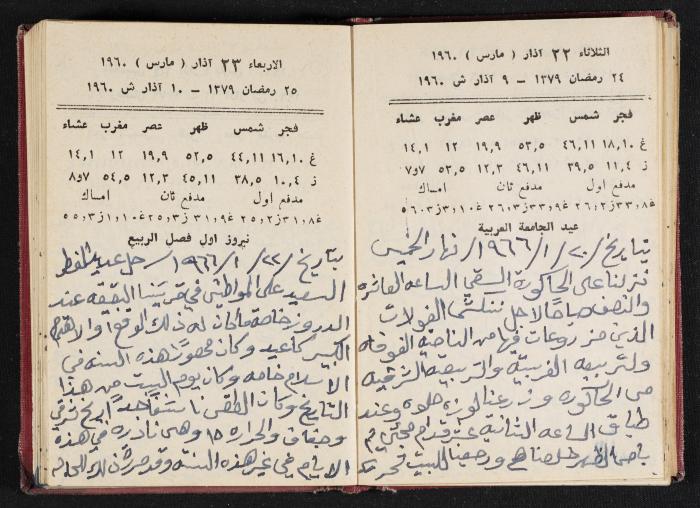 الثلاثاء ٢٢ آذار ( مارس ) ١٩٦٠
٢٤ رمضان ١٣٧٩ – ٩ آذار ش ١٩٦٠
فجر شمس ظهر عصر مغرب عشاء
غ ١٠,١٨ ١١,٤٦ ٥,٥٣ ٩,١٩ ١٢ ١,١٤
ز ٤,١١ ٥,٣٩ ١١,٤٦ ٣,١٢ ٥,٥٣ ٧و٧
مدفع اول مدفع ثان امساك
عيد الجامعة العربية
بتاريخ ٢٠/ ١/ ١٩٦٦ نهار الخميس
نزلنا على الحاكورة السقي الساعه العاشره
والنصف صباحا لاجل ننكش الفولات
الذين مزروعات فيها من الناحية الفوقاه
والتربيعه الغربية والتربيعه الشرقيه
من الحاكوره وزرعنا لوزه حلوه وعند
الساعه الثانية
ورجعنا للبيت
الاربعاء ٢٣ آذار ( مارس ) ١٩٦٠
٢٥ رمضان ١٣٧٩ – ١٠ آذار ش ١٩٦٠
فجر شمس ظهر عصر مغرب عشاء
غ ١٠,١٦ ١١,٤٤ ٥,٥٢ ٩,١٩ ١٢ ١,١٤
ز ٤,١٠ ٥,٣٨ ١١,٤٥ ٣,١٢ ٥,٥٤ ٨و٧
مدفع اول مدفع ثان امساك
نيروز اول فصل الربيع
بتاريخ ٢٢/ ١/ ١٩٦٦ حل عيد الفطر
السعيد على المواطنين في قريتنا البقيعه عند
الدروز خاصة ما كان له ذلك الوقع والاهتمام
الكبير كاعيد وكان محصورا هذه السنه في
الاسلام خاصه وكان يوم السبت من هذا
التاريخ وكان الطقس ناشفا جدا ريح شرقي
وجفاف والحراره وهي نادره في هذه
الايام في غير هذه السنه وقد